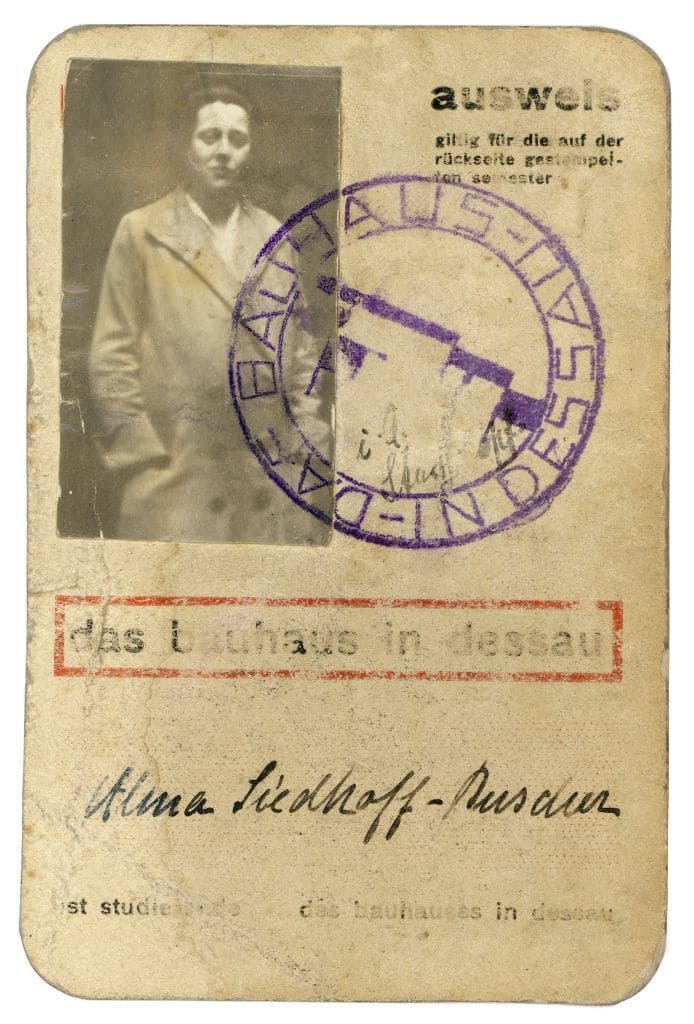 ausweis
giltig für die auf der
rückseite gestempel-
ten semester
DAS BAUHAUS IN DESSAU
das bauhaus in dessau
Alma Siedhoff-Buscher
ist studierende des bauhauses in dessau